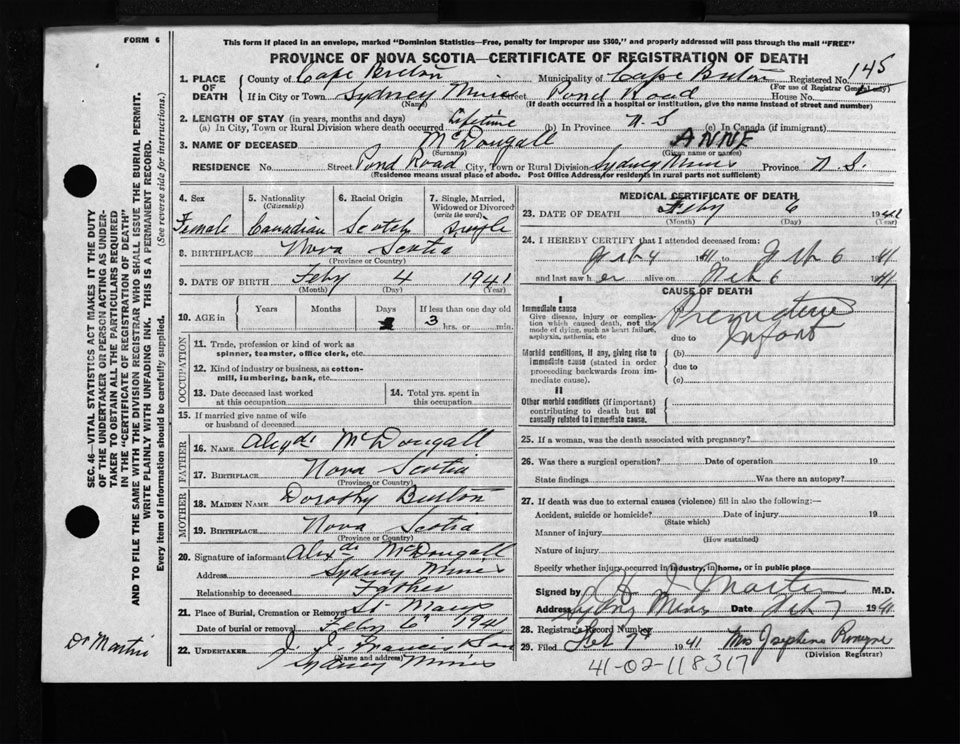 FORM 6
This form if placed in an envelope, marked "Dominion Statistics—Free, penalty for improper use $300," and properly addressed will pass through the mail "FREE"
PROVINCE OF NOVA SCOTIA—CERTIFICATE OF REGISTRATION OF DEATH
1. PLACE OF DEATH County of Cape Breton Municipality of Cape Breton Registered No. 145
(For use of Registrar General only)
If in City or Town Sydney Mines Street Pond Road House No.
(Name) (If death occurred in a hospital or institution, give the name instead of street and number)
2. LENGTH OF STAY (in years, months and days)
(a) In City, Town or Rural Division where death occurred Lifetime (b) In Province N.S (c) In Canada (if immigrant)
3. NAME OF DECEASED McDougall ANNE
(Surname) (Given name or names)
RESIDENCE No. Street Pond Road City, Town or Rural Division Sydney Mines Province N.S.
(Residence means usual place of abode. Post Office Address for residents in rural parts not sufficient)
4. Sex 5. Nationality 6. Racial Origin 7. Single, Married, Widowed or Divorced
(Citizenship) (write the word)
Female Canadian Scotch Single
8. BIRTHPLACE Nova Scotia
(Province or Country)
9. DATE OF BIRTH Feby 4 1941
(Month) (Day) (Year)
10. AGE in Years Months Days If less than one day old
3 hrs. or min.
OCCUPATION
11. Trade, profession or kind of work as spinner, teamster, office clerk, etc.
12. Kind of industry or business, as cotton-mill, lumbering, bank, etc.
13. Date deceased last worked at this occupation
14. Total yrs. spent in this occupation
15. If married give name of wife or husband of deceased
FATHER
16. NAME McDougall
17. BIRTHPLACE Nova Scotia
(Province or Country)
MOTHER
18. MAIDEN NAME Dorothy Burton
19. BIRTHPLACE Nova Scotia
(Province or Country)
20. Signature of informant McDougall
Address Sydney Mines
Relationship to deceased Father
21. Place of Burial, Cremation or Removal St. Marys
Date of burial or removal Feby 6 1941
22. UNDERTAKER J. J. Francis
(Name and address)
Sydney Mines
MEDICAL CERTIFICATE OF DEATH
23. DATE OF DEATH Feby 6 1941
(Month) (Day) (Year)
24. I HEREBY CERTIFY that I attended deceased from:
Feb 4 1941 to Feb 6 1941
and last saw her alive on Feb 6 1941
CAUSE OF DEATH
I
Immediate cause
Give disease, injury or complication which caused death, not the mode of dying, such as heart failure, asphyxia, asthenia, etc
Premature
due to Infant
Morbid conditions, if any, giving rise to immediate cause (stated in order proceeding backwards from immediate cause).
(b)
due to
(c)
II
Other morbid conditions (if important) contributing to death but not causally related to immediate cause.
25. If a woman, was the death associated with pregnancy?
26. Was there a surgical operation? Date of operation 19
State findings Was there an autopsy?
27. If death was due to external causes (violence) fill in also the following:—
Accident, suicide or homicide? Date of injury 19
(State which)
Manner of injury
(How sustained)
Nature of injury
Specify whether injury occurred in industry, in home, or in public place
Signed by Martin M.D.
Address Sydney Mines Date Feb 7 1941
28. Registrar's Record Number
29. Filed Feb 7 1941 Mrs Josephine
(Division Registrar)
41-02-118317
SEC. 46—VITAL STATISTICS ACT MAKES IT THE DUTY
OF THE UNDERTAKER OR PERSON ACTING AS UNDER-
TAKER TO OBTAIN ALL THE PARTICULARS REQUIRED
IN THE "CERTIFICATE OF REGISTRATION OF DEATH"
AND TO FILE THE SAME WITH THE DIVISION REGISTRAR WHO SHALL ISSUE THE BURIAL PERMIT.
WRITE PLAINLY WITH UNFADING INK. THIS IS A PERMANENT RECORD.
Every item of information should be carefully supplied. (See reverse side for instructions.)
Dr Martin